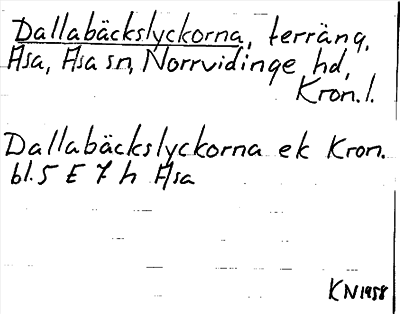 Dallabäckslyckorna, terräng,
Asa, Asa sn, Norrvidinge hd,
Kron. l.
Dallabäckslyckorna ek Kron.
bl. 5 E 7 h Asa
KN 1958